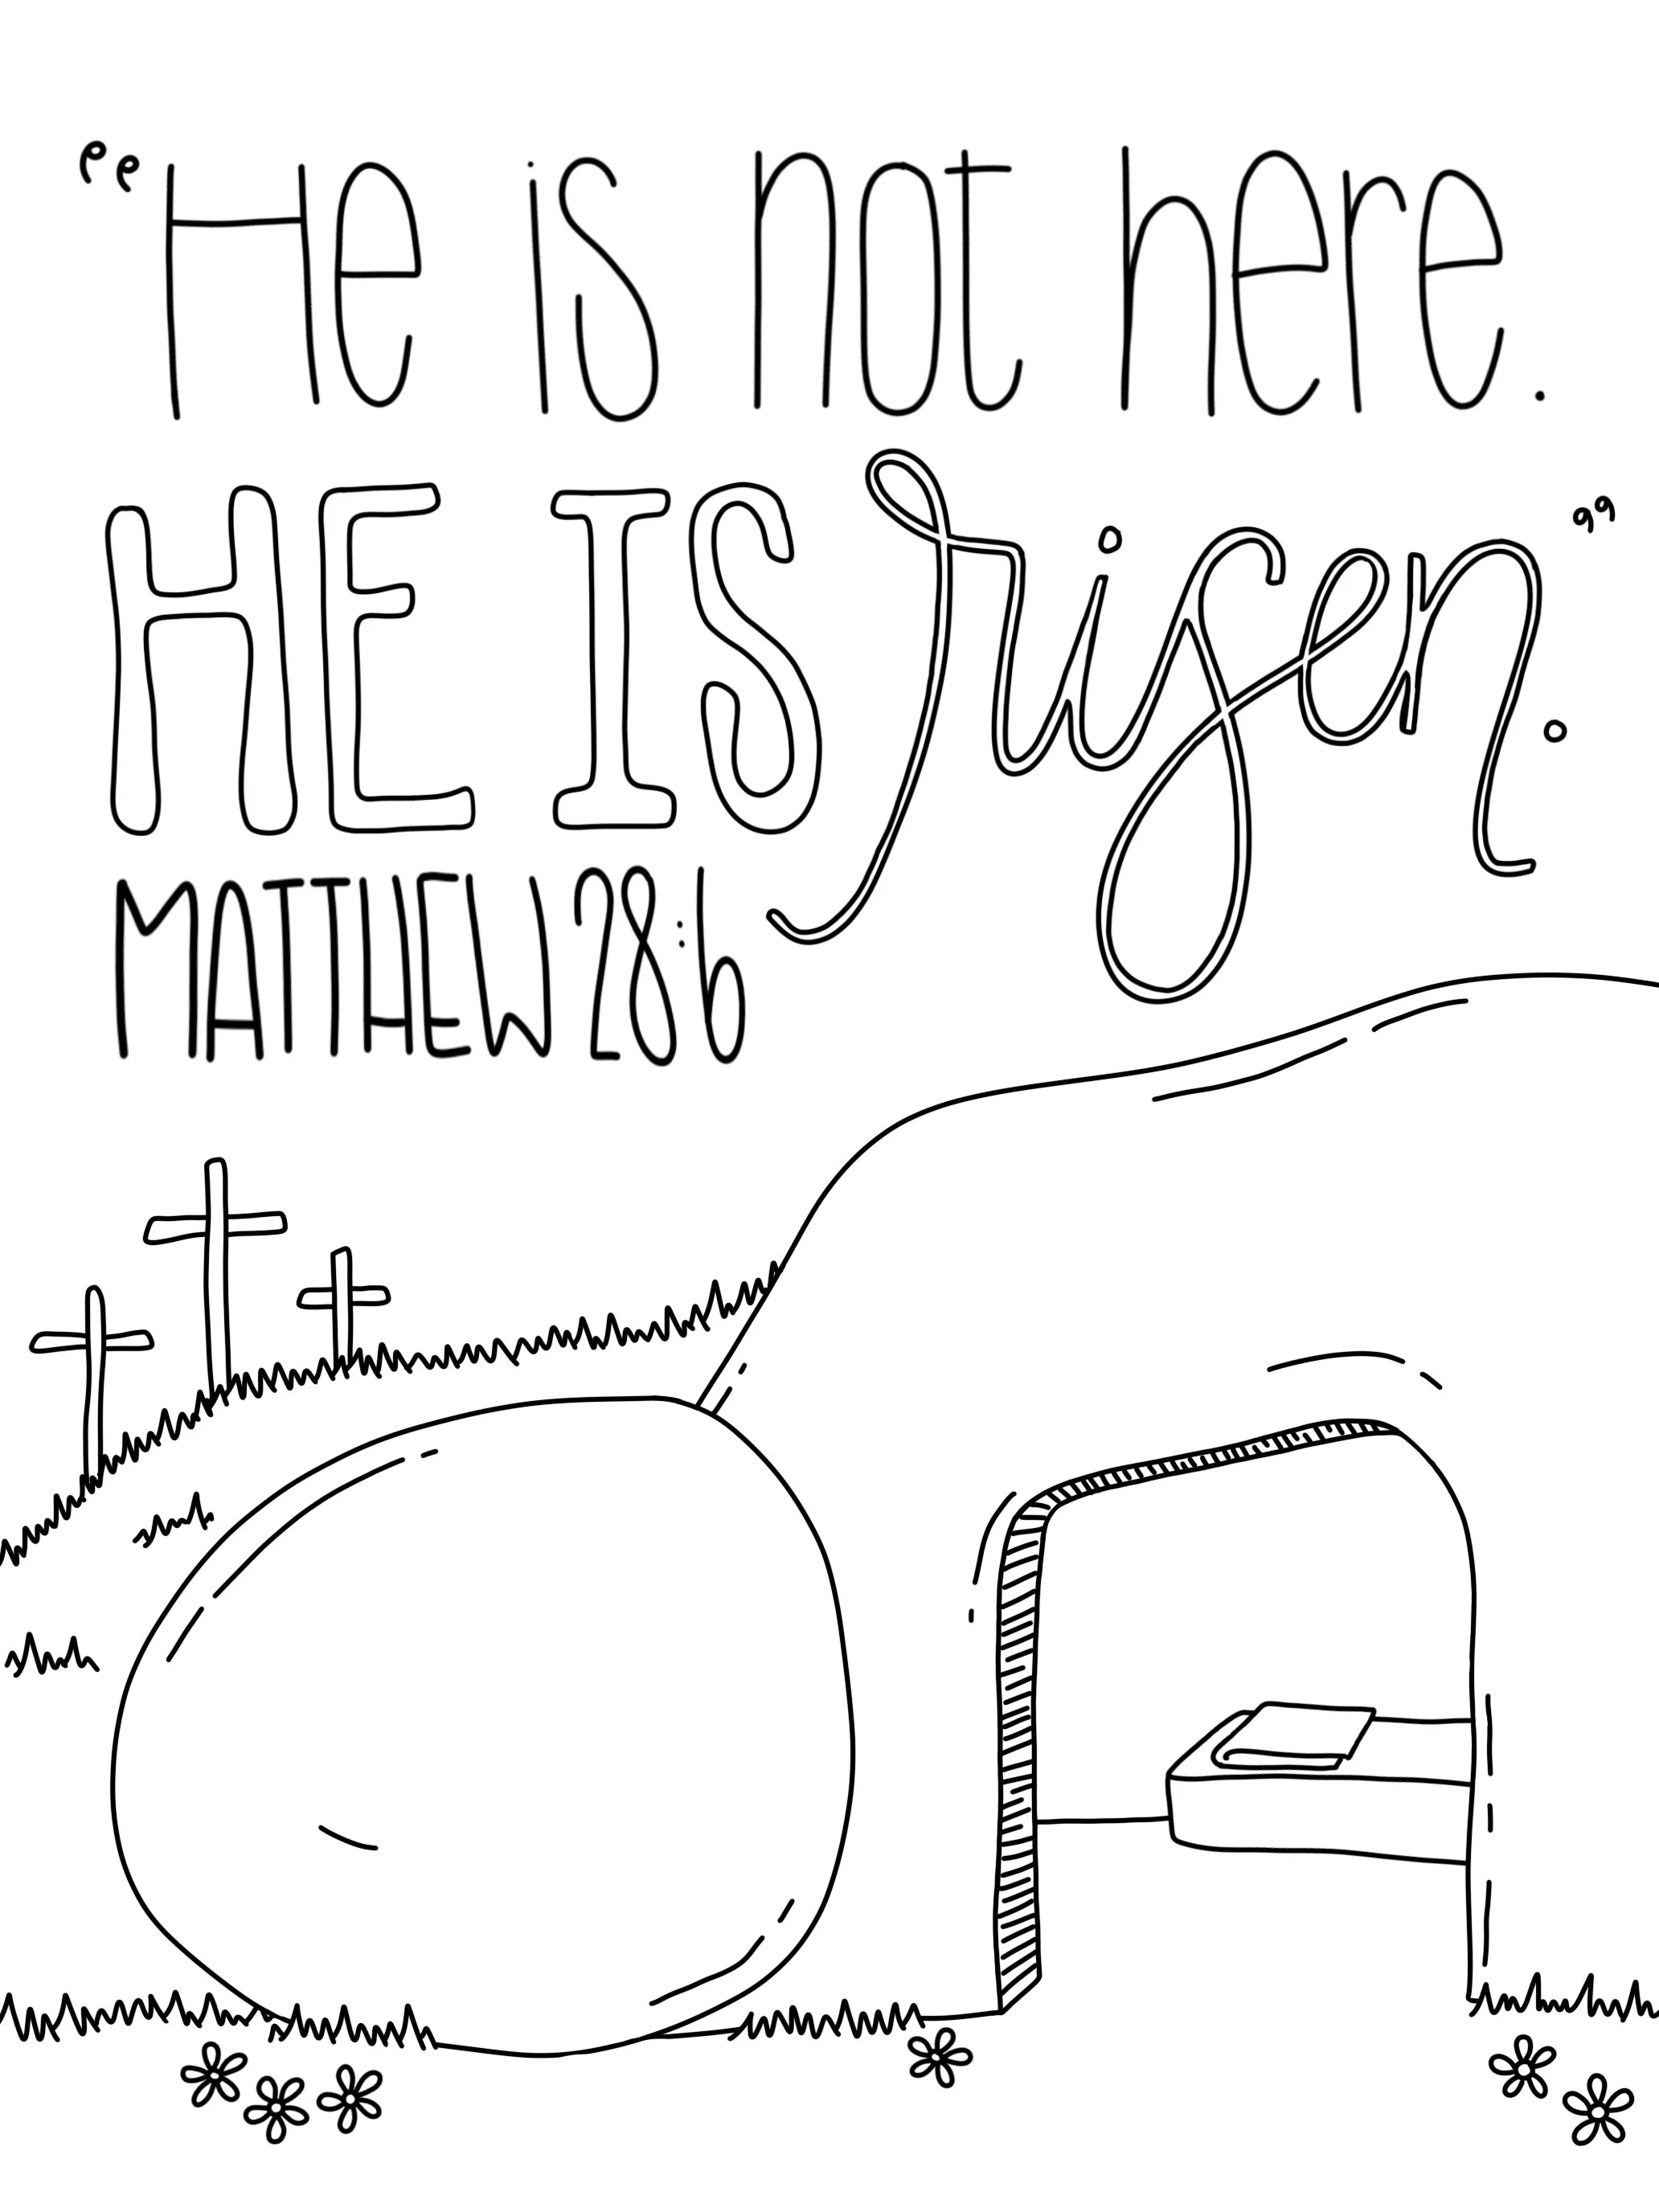 “He is not here.
HE IS risen.”
MATTHEW 28:6